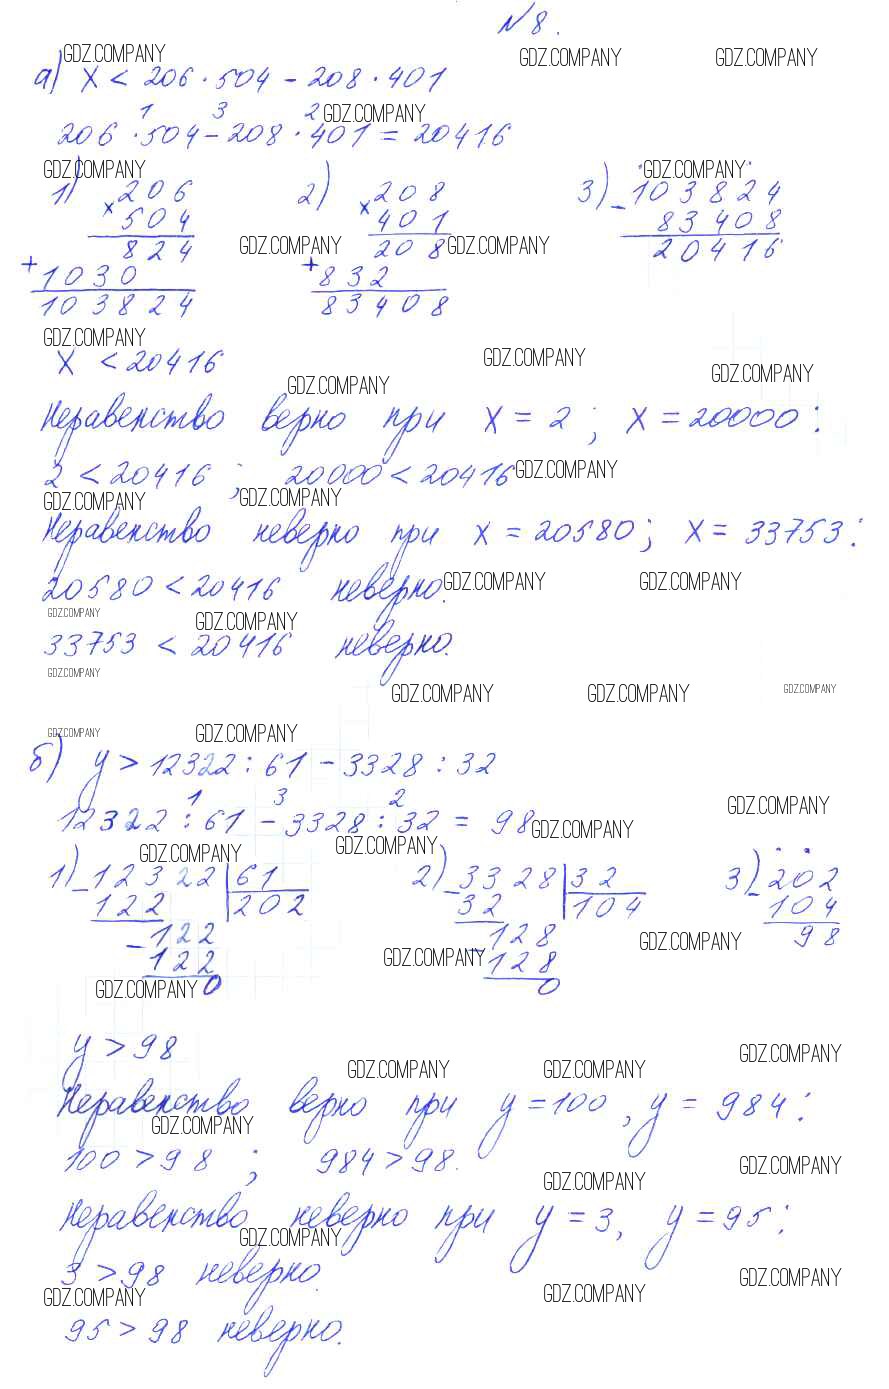 №8.
GDZ.COMPANY GDZ.COMPANY GDZ.COMPANY
а) x < 206 · 504 - 208 · 401
1 3 2 GDZ.COMPANY
206 · 504 - 208 · 401 = 20416
GDZ.COMPANY GDZ.COMPANY
1) 206 2) 208 3) - 103824
× 504 × 401 83408
824 GDZ.COMPANY 208 GDZ.COMPANY 20416
+ 1030 + 832
103824 83408
GDZ.COMPANY
x < 20416 GDZ.COMPANY GDZ.COMPANY
GDZ.COMPANY
Неравенство верно при x = 2 ; x = 20000 :
2 < 20416 ; 20000 < 20416 GDZ.COMPANY
GDZ.COMPANY GDZ.COMPANY
Неравенство неверно при x = 20580; x = 33753 :
20580 < 20416 неверно. GDZ.COMPANY GDZ.COMPANY
GDZ.COMPANY GDZ.COMPANY
33753 < 20416 неверно.
GDZ.COMPANY
GDZ.COMPANY GDZ.COMPANY GDZ.COMPANY
GDZ.COMPANY GDZ.COMPANY
б) y > 12322 : 61 - 3328 : 32
1 3 2 GDZ.COMPANY
12322 : 61 - 3328 : 32 = 98 GDZ.COMPANY
GDZ.COMPANY GDZ.COMPANY
1) - 12322 61 2) - 3328 32 3) - 202
122 202 32 104 104
- 122 - 128 98
GDZ.COMPANY
122 GDZ.COMPANY 128
GDZ.COMPANY 0 0
y > 98 GDZ.COMPANY
GDZ.COMPANY GDZ.COMPANY
Неравенство верно при y = 100 , y = 984 :
GDZ.COMPANY
100 > 98 ; 984 > 98. GDZ.COMPANY
GDZ.COMPANY
Неравенство неверно при y = 3, y = 95 :
GDZ.COMPANY
3 > 98 неверно. GDZ.COMPANY
GDZ.COMPANY GDZ.COMPANY
95 > 98 неверно.